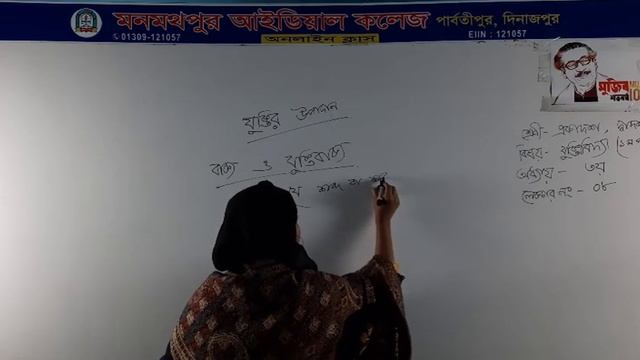 মনমথপুর আইডিয়াল কলেজ পার্বতীপুর, দিনাজপুর
01309-121057
EIIN : 121057
অনলাইন ক্লাস
মুজিব
যুক্তির উপাদান
বাক্য ও যুক্তিবাক্য
যে শব্দ বা
শ্রেণী- একাদশ,
বিষয়- যুক্তিবিদ্যা
অধ্যায় - ৩য়
লেকচার নং- ০৮